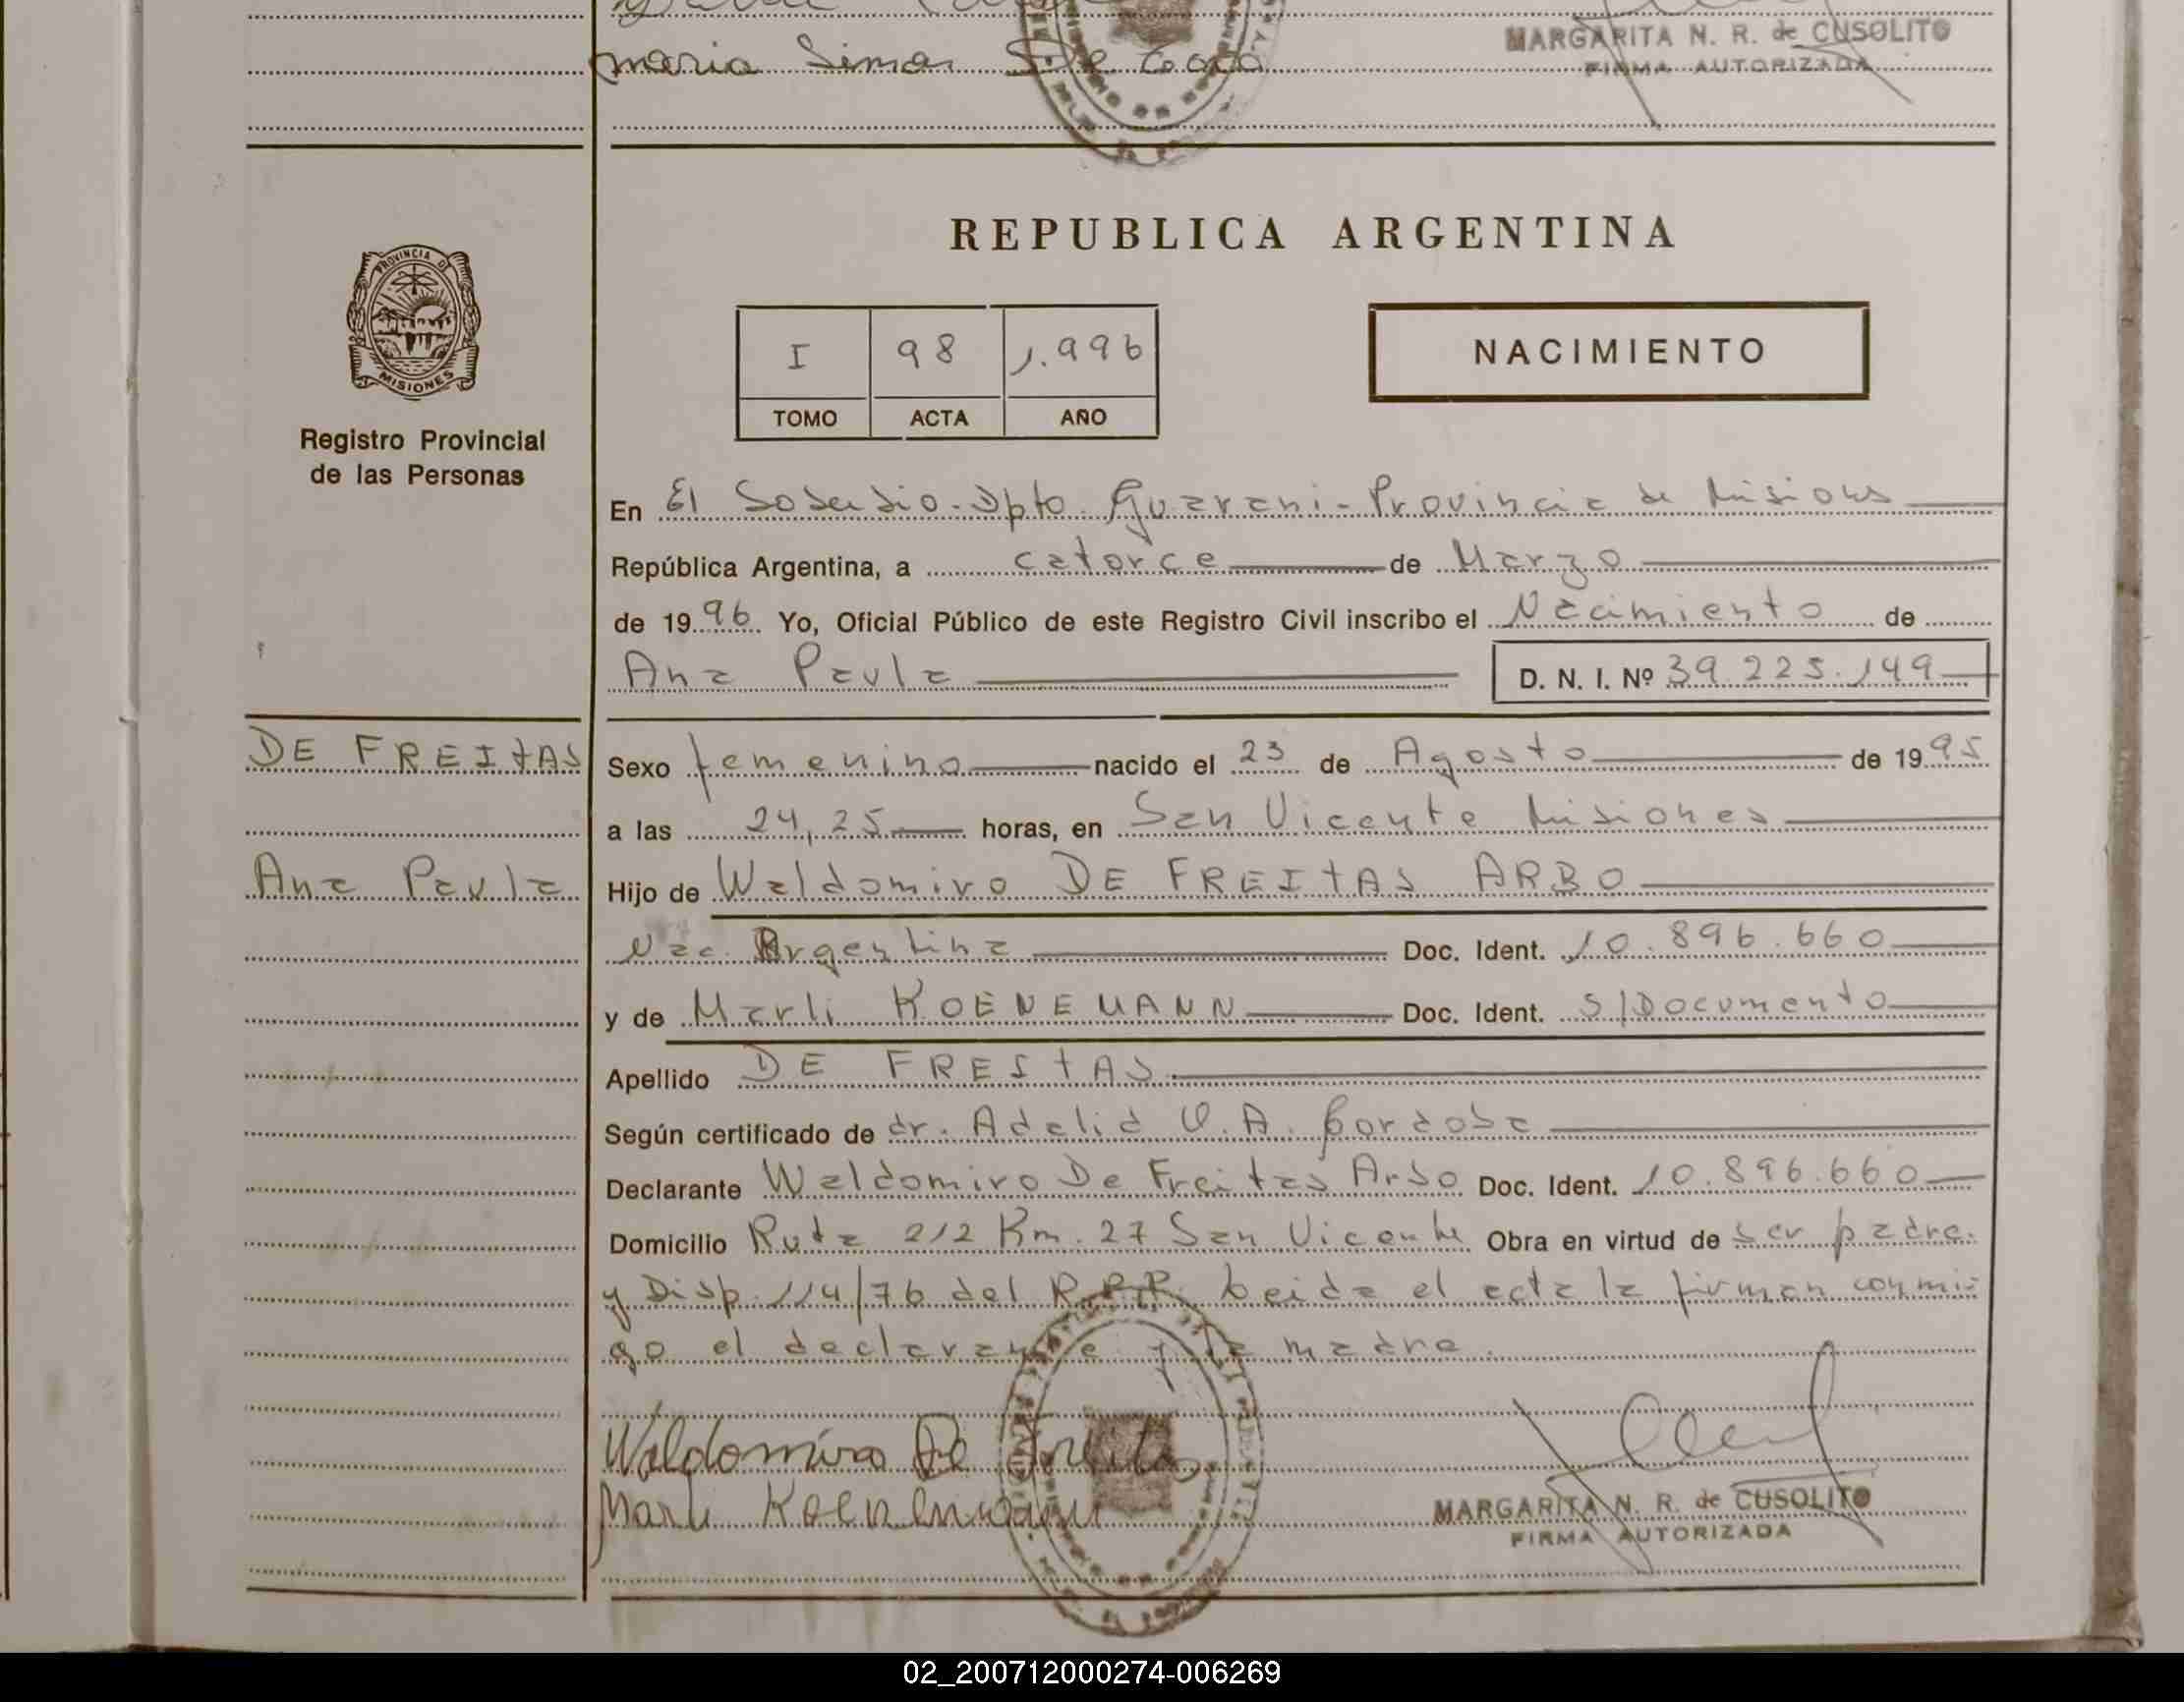 maria Simon De
MARGARITA N. R. de CUSOLITO
FIRMA AUTORIZADA
PROVINCIA DE
MISIONES
Registro Provincial
de las Personas
REPUBLICA ARGENTINA
I 98 1.996
TOMO ACTA AÑO
NACIMIENTO
En El Soberbio - Dpto. Guarani - Provincia de Misiones
República Argentina, a catorce de Marzo
de 1996 Yo, Oficial Público de este Registro Civil inscribo el Nacimiento de
Ana Paula D. N. I. Nº 39.225.149
DE FREITAS
Ana Paula
Sexo femenino nacido el 23 de Agosto de 1995
a las 24,25 horas, en San Vicente Misiones
Hijo de Waldomiro DE FREITAS ARBO
Nac. Argentina Doc. Ident. 10.896.660
y de Marli KOENEMANN Doc. Ident. S/Documento
Apellido DE FREITAS
Según certificado de dr. Adelid V. A. Cordoba
Declarante Waldomiro De Freitas Arbo Doc. Ident. 10.896.660
Domicilio Ruta 212 Km. 27 San Vicente Obra en virtud de ser padre
y Disp. 114/76 del R.P.P. Leida el acta la firman conmi-
go el declarante y la madre
Waldomiro De Freitas
Marli Koenemann
MARGARITA N. R. de CUSOLITO
FIRMA AUTORIZADA
02_200712000274-006269